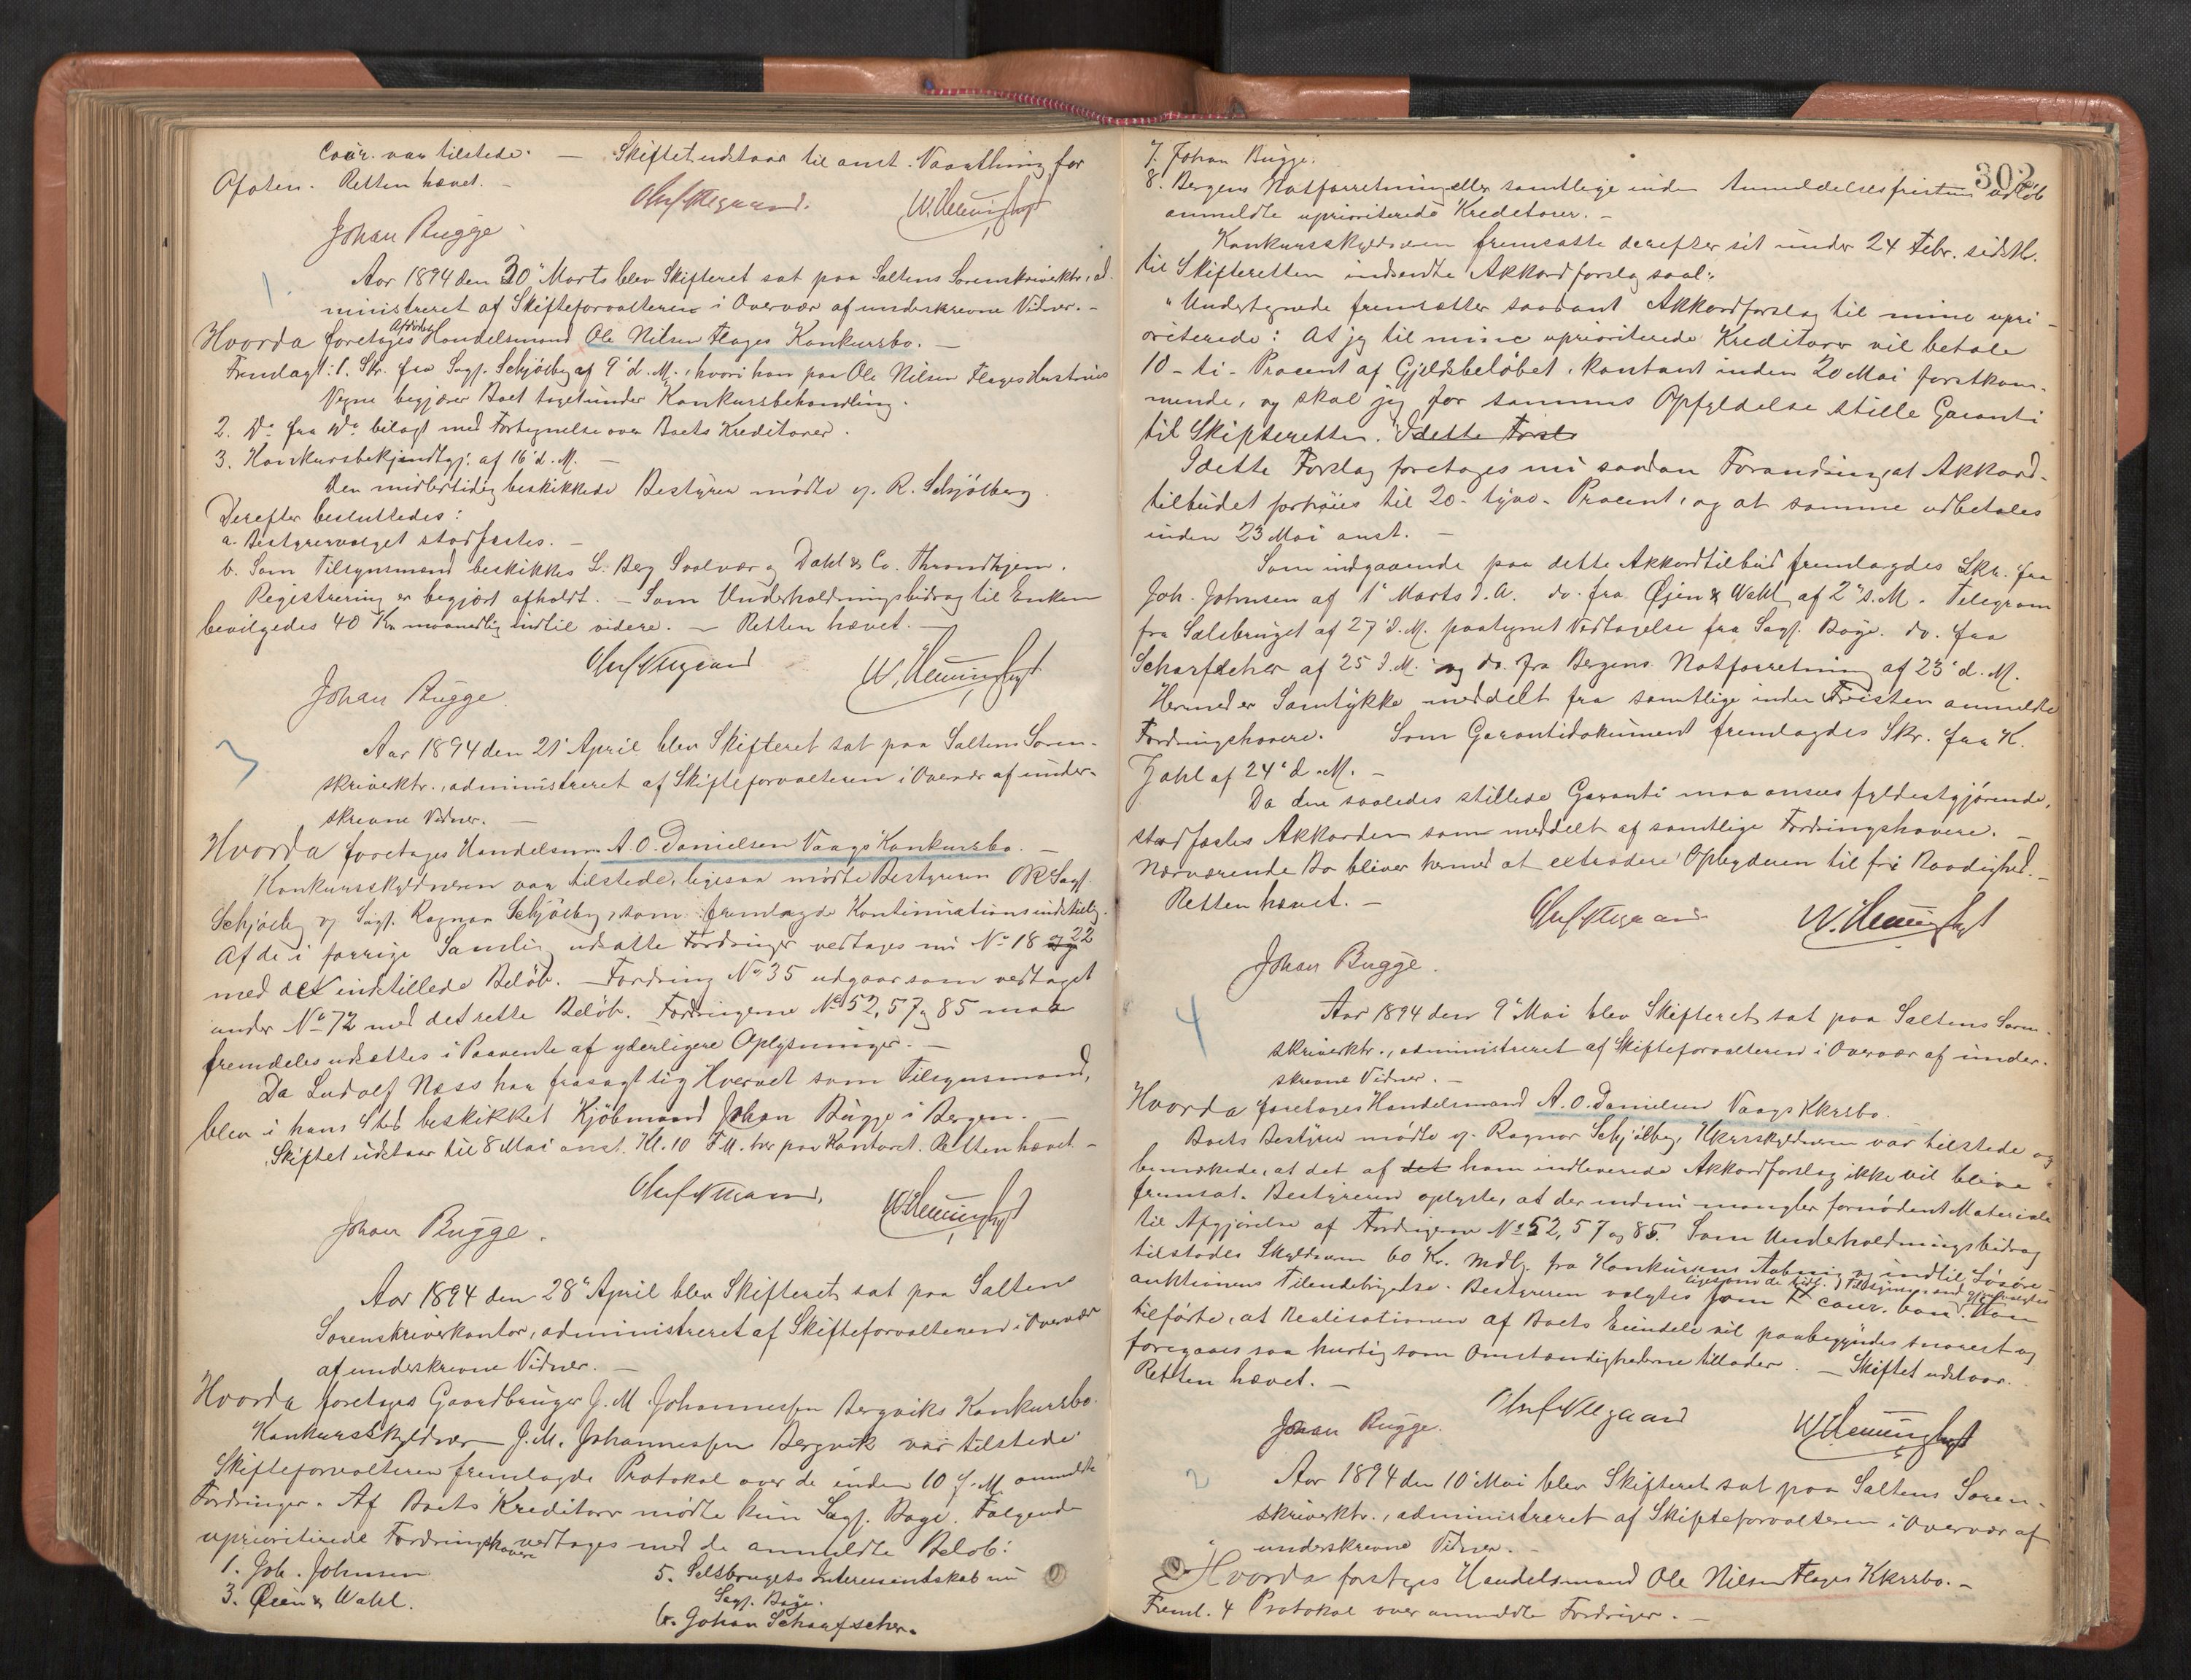 Cour. var tilstede. — Skiftet udstaar til anst. Vaarthing for
Ofoten. Retten hævet. —
Johan Bugge
1.
Aar 1894 den 30' Marts blev Skifteret sat paa Saltens Sorenskriverktr., ad-
ministreret af Skifteforvalteren i Overvær af underskrevne Vidner. —
Hvorda foretoges Afdøde Handelsmand Ole Nilsen Flages Konkursbo. —
Fremlagt: 1. Skr. fra Sagf. Schjølberg af 9' d. M., hvori han paa Ole Nilsen Flages Hustrues
Vegne begjærer Boet taget under Konkursbehandling.
2. Do fra Do bilagt med Fortegnelse over Boets Kreditorer.
3. Konkursbekjendtgj. af 16' d. M. —
Den midlertidig beskikkede Bestyrer mødte v. R. Schjölberg
Derefter besluttedes:
a. Bestyrervalget stadfæstes. —
b. Som Tilsynsmænd beskikkes L. Berg Svolvær og Dahl & Co. Throndhjem.
Registrering er begjært afholdt. — Som Underholdningsbidrag til Enken
bevilgedes 40 Kr. maanedlig indtil videre. — Retten hævet. —
Johan Bugge
3
Aar 1894 den 21' April blev Skifteret sat paa Saltens Soren-
skriverktr., administreret af Skifteforvalteren i Overvær af under-
skrevne Vidner. —
Hvorda foretoges Handelsm. A. O. Danielsen Vaags Konkursbo. —
Konkursskyldneren var tilstede, ligesaa mødte Bestyreren ORSagf.
Schjölberg v. Sagf. Ragnar Schjölberg, som fremlagde Kontinuationsindstilling.
Af de i forrige Samling udsatte Fordringer vedtages nu No 18 og 22
med det indstillede Beløb. — Fordring No 35 udgaar som vedtaget
under No 72 med det rette Beløb. Fordringerne No 52, 57 og 85 maa
fremdeles udsættes i Paavente af yderligere Oplysninger. —
Da Ludolf Næss har frasagt sig Hvervet som Tilsynsmand,
blev i hans Sted beskikket Kjöbmand Johan Bugge i Bergen. —
Skiftet udstaar til 8 Mai anst. Kl. 10 F.M. her paa Kontoret. Retten hævet. —
Johan Bugge.
Aar 1894 den 28' April blev Skifteret sat paa Saltens
Sorenskriverkontor, administreret af Skifteforvalteren i Overvær
af underskrevne Vidner. —
Hvorda foretoges Gaardbruger J. M. Johannessen Bergviks Konkursbo.
Konkursskyldner J. M. Johannessen Bergvik var tilstede.
Skifteforvalteren fremlagde Protokol over de inden 10 f. M. anmeldte
Fordringer. Af Boets Kreditorer mødte kun Sagf. Boge. Følgende
uprioriterede Fordringshavere vedtages med de anmeldte Beløb:
1. Joh. Johnsen
3. Øien & Wahl.
5. Salsbrugets Interessentskab v.
Sagf. Boge.
6. Johan Scharfscher.
302
7. Johan Bugge.
8. Bergens Notforretning eller samtlige inden Anmeldelsesfristens Udløb
anmeldte uprioriterede Kreditorer. —
Konkursskyldneren fremsatte derefter sit under 24 Febr. sidstl.
til Skifteretten indsendte Akkordforslag saal.:
"Undertegnede fremsætter saadant Akkordforslag til mine upri-
oriterede: At jeg til mine uprioriterede Kreditorer vil betale
10 - ti - Procent af Gjeldsbeløbet, kontant inden 20 Mai førstkom-
mende, og skal jeg for sammes Opfyldelse stille Garanti
til Skifteretten." I dette Forsl
I dette Forslag foretoges nu saadan Forandring, at Akkord-
tilbudet forhøies til 20 - tyve - Procent, og at samme udbetales
inden 23 Mai anst. —
Som indgaaende paa dette Akkordtilbud fremlagdes Skr. fra
Joh. Johnsen af 1' Marts d. A. do. fra Øjen & Wahl af 2' s. M. Telegram
fra Salsbruget af 27' d. M. paategnet Vedtagelse fra Sagf. Boge. do. fra
Scharfscher af 25 d. M. og do. fra Bergens Notforretning af 23' d. M.
Hermed er Samtykke meddelt fra samtlige inden Fristen anmeldte
Fordringshavere. Som Garantidokument fremlagdes Skr. fra K.
Zahl af 24' d. M. —
Da den saaledes stillede Garanti maa ansees fyldestgjørende,
stadfæstes Akkorden som meddelt af samtlige Fordringshavere. —
Nærværende Bo bliver hermed at extradere Opbyderen til fri Raadighed. —
Retten hævet. —
Johan Bugge.
4
Aar 1894 den 9' Mai blev Skifteret sat paa Saltens Soren-
skriverktr., administreret af Skifteforvalteren i Overvær af under-
skrevne Vidner. —
Hvorda foretoges Handelsmand A. O. Danielsen Vaags Kkrsbo.
Boets Bestyrer mødte v. Ragnar Schjølberg, Kkrsskyldneren var tilstede og
bemærkede, at det af det ham indleverede Akkordforslag ikke vil blive
fremsat. Bestyreren oplyste, at der endnu mangler fornødent Materiale
til Afgjørelse af Fordringerne No 52, 57 og 85. Som Underholdningsbidrag
tilstodes Skyldneren 60 Kr. mdlg. fra Konkursens Aabning og indtil Løsøre-
auktionens Tilendebringelse. Bestyreren valgtes som cour. ligesom de tidl. Tilsynsmænd Han
tilførte, at Realisationen af Boets Eiendele vil paabegyndes snarest og
foregaaes saa hurtig som Omstændighederne tillader. — Skiftet udstaar.
Retten hævet. —
Johan Bugge.
2
Aar 1894 den 10' Mai blev Skifteret sat paa Saltens Soren-
skriverktr., administreret af Skifteforvalteren i Overvær af
underskrevne Vidner.
Hvorda foretoges Handelsmand Ole Nilsen Flages Kkrsbo. —
Freml. 4 Protokol over anmeldte Fordringer. —